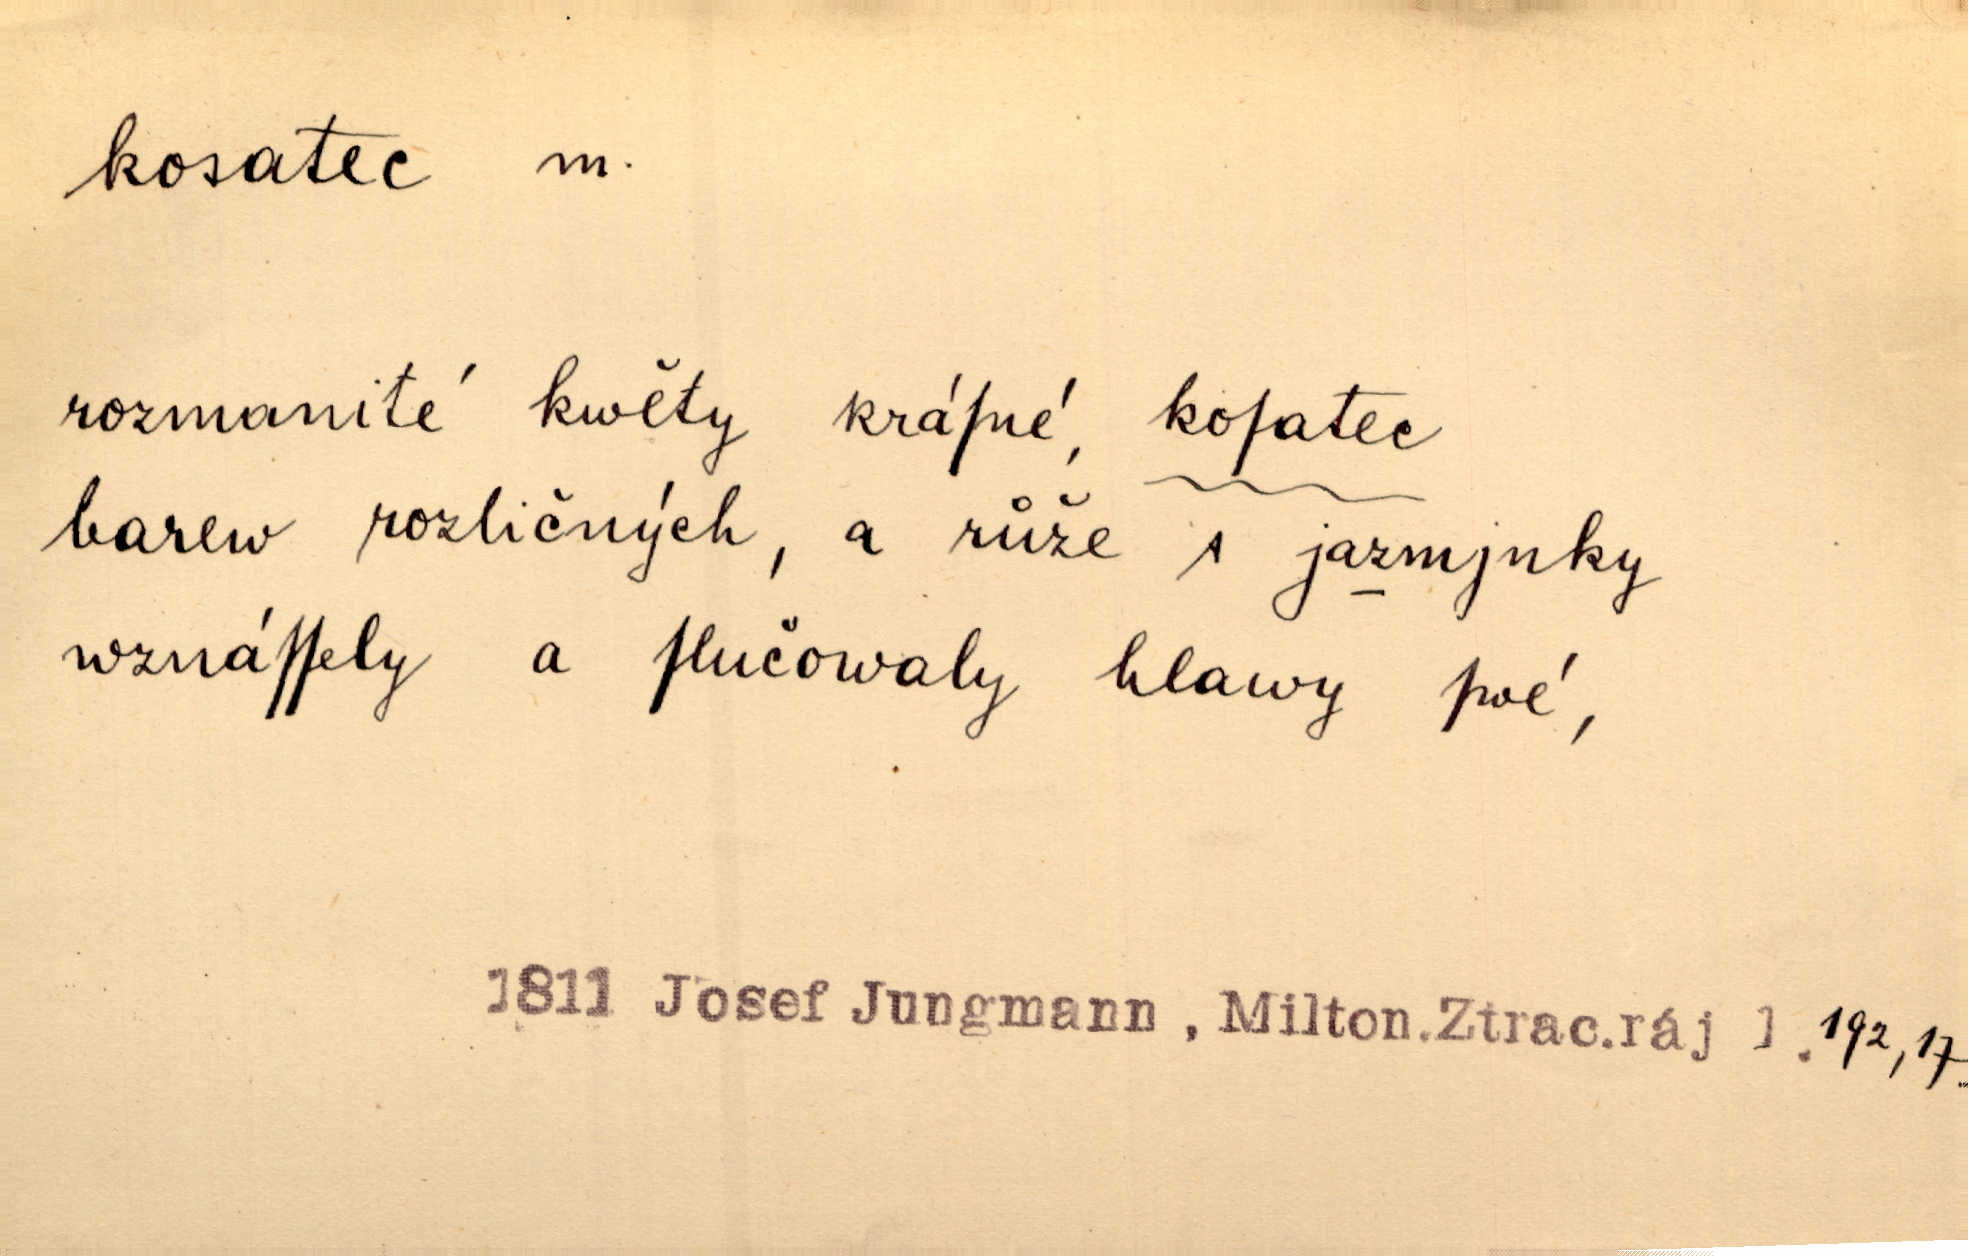 kosatec m.
rozmanité kwěty kráſné, koſatec
barew rozličných, a růže s jazmjnky
wznáſſely a ſlučowaly hlawy ſwé,
1811 Josef Jungmann , Milton.Ztrac.ráj 1.192,17